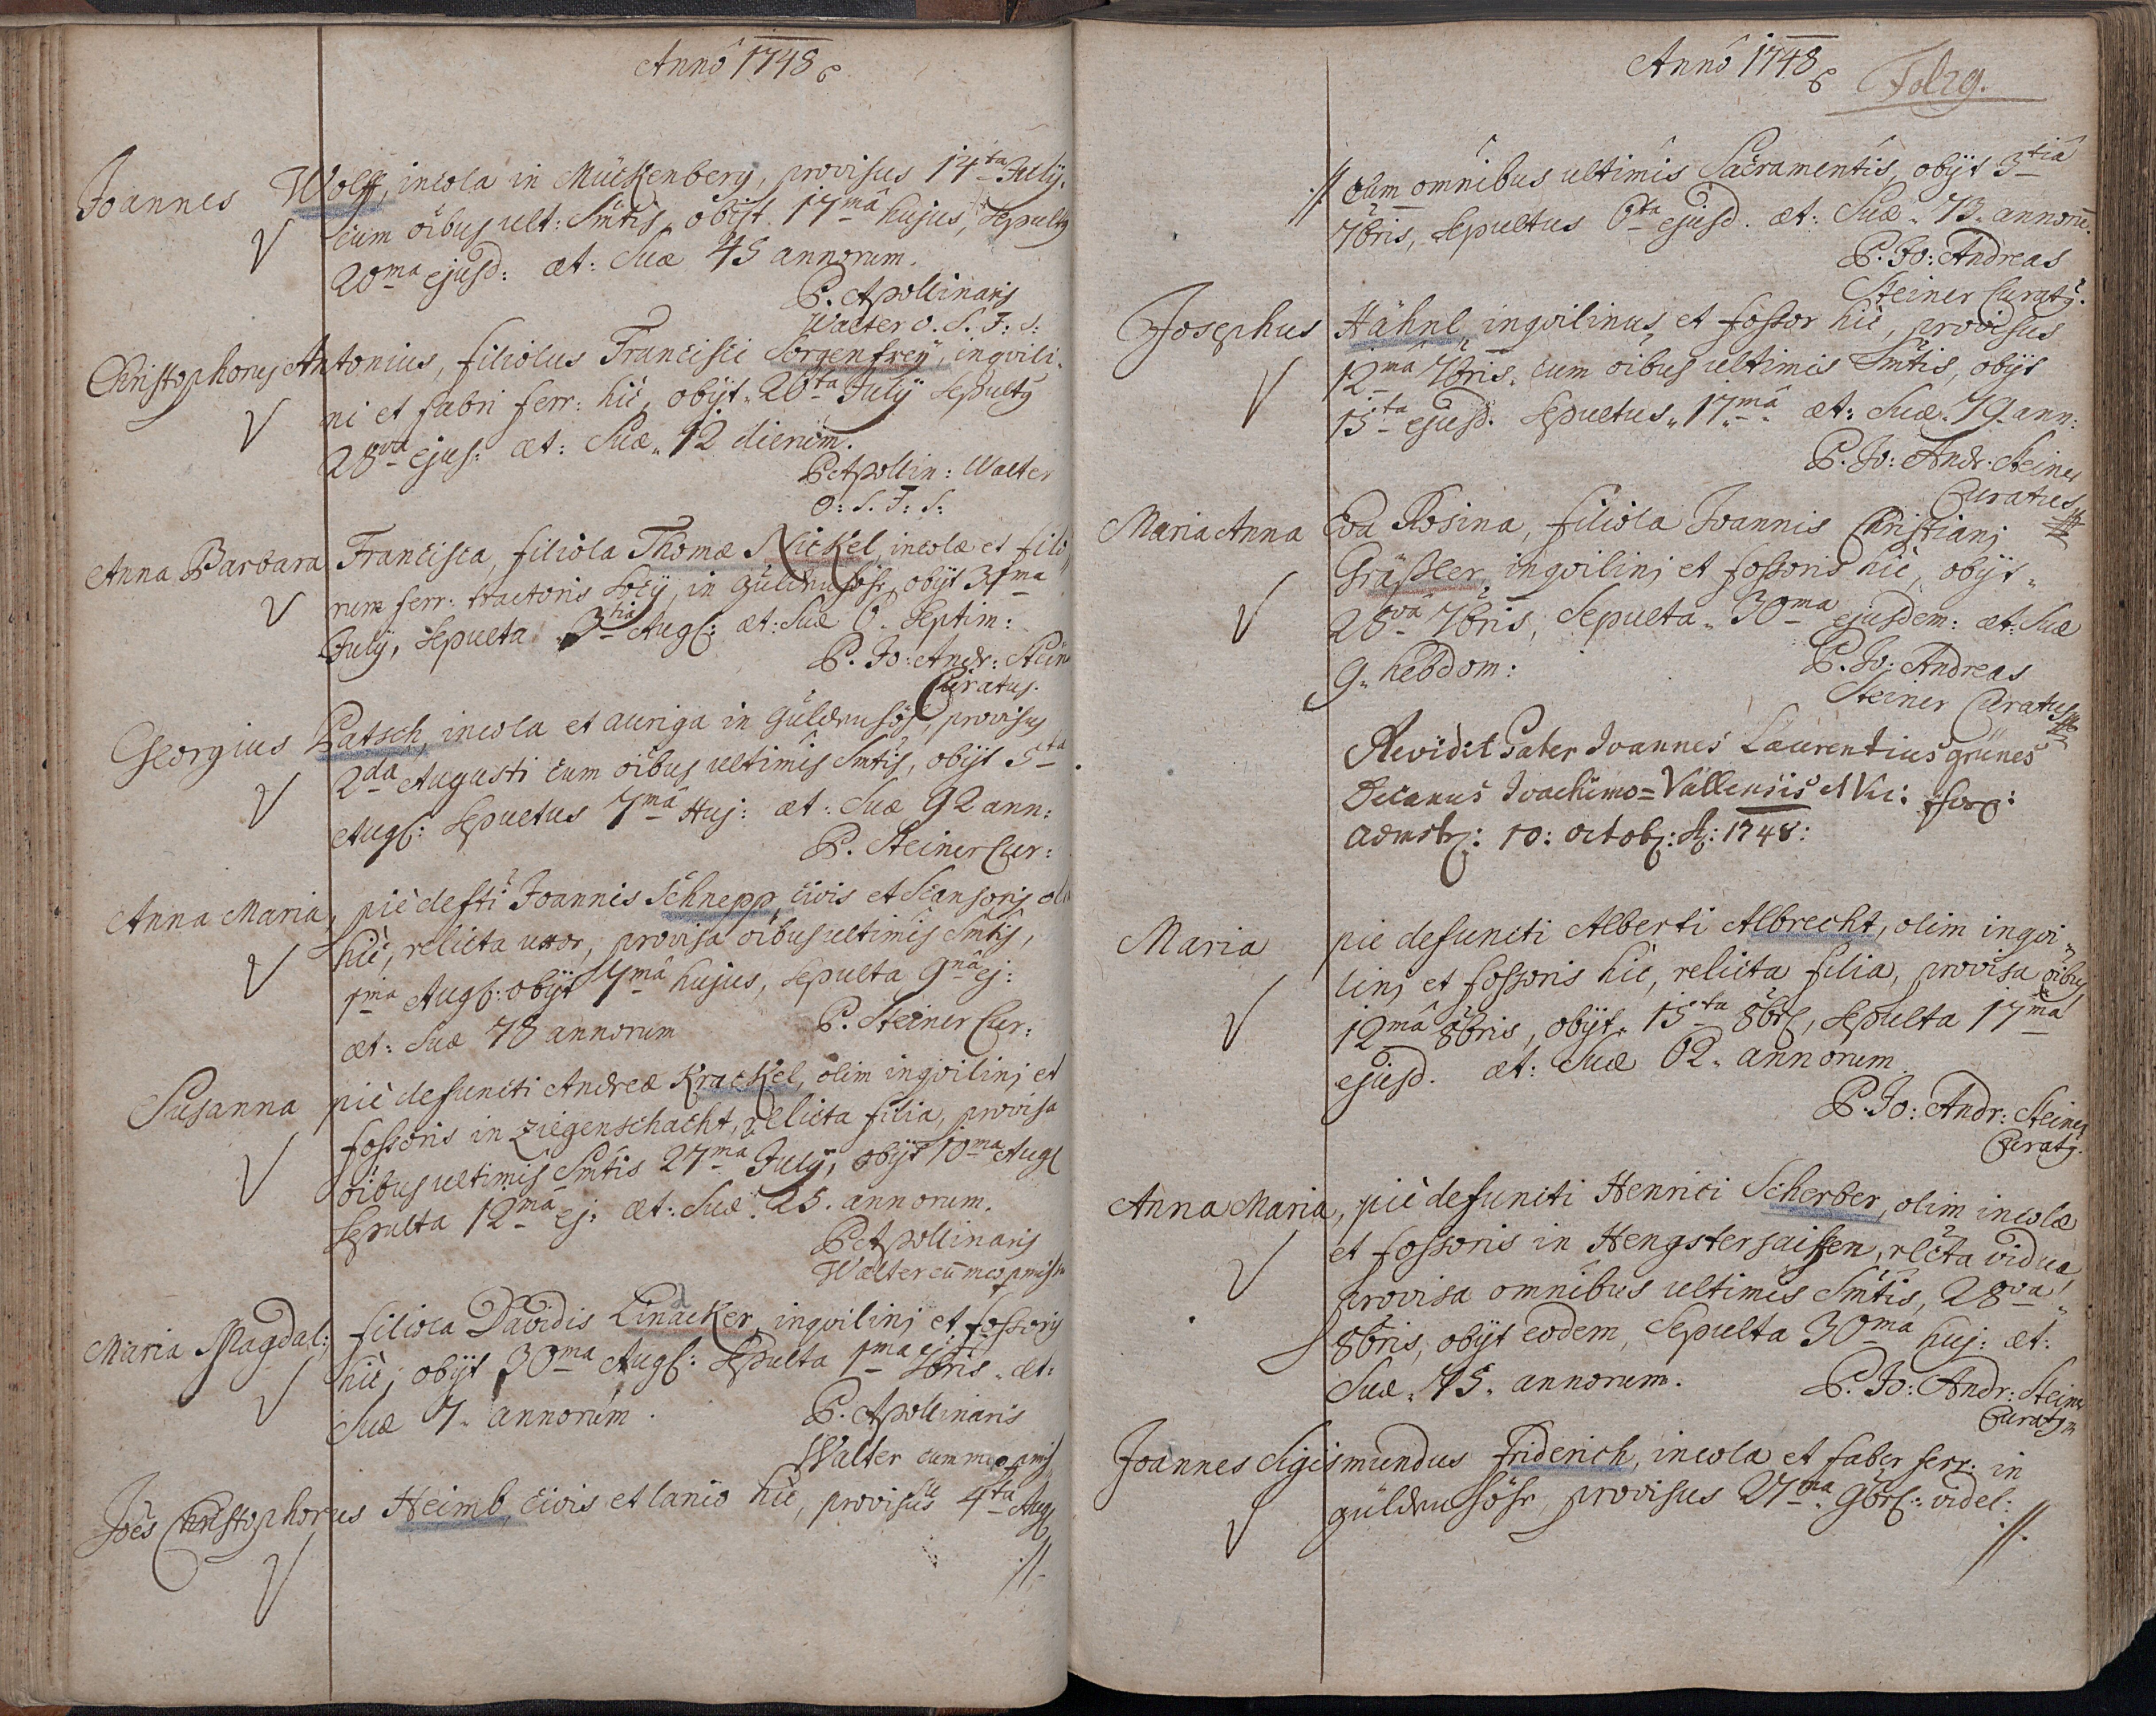 Anno 1748
Joannes Wolff, incola in Mückenberg, provisus 14ta July.
cum oibus ult: Smtis, obijt. 17ma hujus, Sepultq
20ma ejusd: æt: Suæ 45 annorum.
P. Apollinaris
Walter O. S. F: S:
Christophorus Antonius, filiolus Francisci Sorgenfreÿ, inqvili,
ni et fabri ferr: hic, obijt. 26ta July Sepultq
28va ejus: æt: Suæ. 12 dierum.
P. Apollin: Walter
O: S. F: S:
Anna Barbara Francisca, filiola Thomæ Nickel, incolæ et filo
rum ferr: tractoris Socij, in Güldenhöhe, obijt 31ma
July, Sepulta 3tia Aug: æt: Suæ 6. Septim:
P. Jo: Andr: Stein
Curatus.
Georgius Patsch, incola et auriga in Güldenhöh, provisus
2da Augusti cum oibus ultimis Smtis, obijt 5ta
Aug: Sepultus 7ma Huj: æt: Suæ 92 ann:
P. Steiner Cur:
Anna Maria, pie defti Joannis Schnepp, civis et Scansoris ol
hic, relicta uxor, provisa oibus ultimis Smtis,
1ma Aug: obijt 7ma hujus, Sepulta 9na ej:
æt: Suæ 78 annorum P. Steiner Cur:
Susanna pie defuncti Andreæ Krackel, olim inqvilinj et
fossoris in Ziegenschacht, relicta filia, provisa
oibus ultimis Smtis 27ma July, obijt 10ma Aug
Sepulta 12ma ej: æt: Suæ. 25. annorum.
P. Apollinaris
Walter cu meo pmiss
Maria Magdal: filiola Davidis Linacker, inqvilinj et fossoris
hic, obijt 30ma Aug: Sepulta 1ma 7bris. æt:
Suæ 7. annorum. P. Apollinaris
Walter cum meo pmiss
Joes Christophorus Heimb, civis et lanio hic, provisus 4ta Aug
.//.
Anno 1748 Fol29.
.//. Cum omnibus ultimis Sacramentis, obijt 3tia
7bris, Sepultus 6ta ejusd. æt: Suæ. 73. annoru.
P. Jo: Andreas
Steiner Curatq.
Josephus Hähnl, inqvilinus, et fossor hic, provisus
12ma 7bris. cum oibus ultimis Smtis, obijt
15ta ejusd. Sepultus. 17ma. æt: Suæ. 79. ann:
P. Jo: Andr. Steiner
Curatus
Maria Anna Eva Rosina, filiola Joannis Christianj
Gräßler, inqvilinj et fossoris hic, obijt.
28va 7bris, Sepulta. 30ma ejusdem: æt: Suæ
9. hebdom: P. Jo: Andreas
Steiner Curatus
Revidit Pater Joannes Laurentius Grünes
Decanus Joachimo=Vallensis et Vic: for:
admstr: 10: octob: A: 1748:
Maria pie defuncti Alberti Albrecht, olim inqvi,
linj et fossoris hic, relicta filia, provisa oibus
12ma 8bris, obijt. 15ta 8br, Sepulta 17ma
ejusd. æt: Suæ 62. annorum.
P. Jo: Andr: Steiner
Curatq.
Anna Maria, pie defuncti Henrici Scherber, olim incolæ
et fossoris in Hengstersaiffen, rlcta vidua
provisa omnibus ultimis Smtis, 28va.
8bris, obijt eodem, Sepulta 30ma huj: æt:
Suæ. 75. annorum. P. Jo: Andr: Steiner
Curatq
Joannes Sigismundus Friderich, incola et faber ferr: in
Güldenhöhe, provisus 27ma. 9br: videl:
.//.